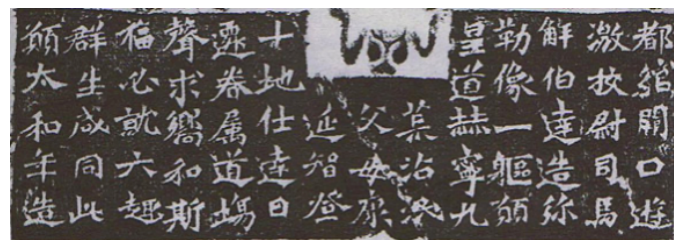 都綰闕口遊
激挍尉司馬
觧伯達造弥
勒像一軀願
皇道赫寧九
荒沾泯
父母康
延智登
十地仕達日
遷眷属道場
聲求嚮和斯
福必就六趣
群生咸同此
願太和年造